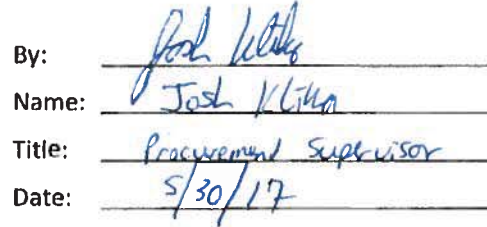 By: Josh Klitka
Name: Josh Klitka
Title: Procurement Supervisor
Date: 5/30/17